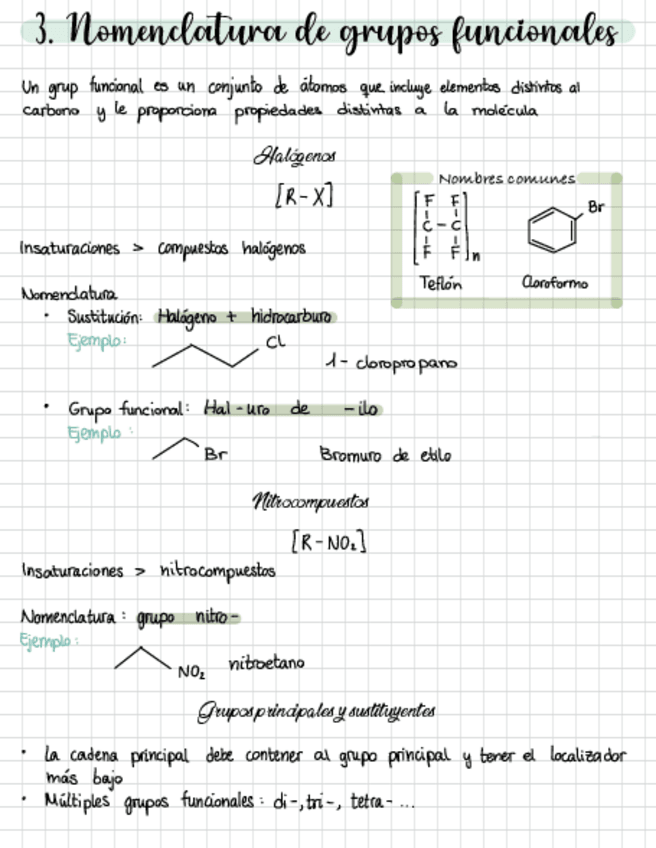 3. Nomenclatura de grupos funcionales
Un grup funcional es un conjunto de átomos que incluye elementos distintos al
carbono y le proporciona propiedades distintas a la molécula
Halógenos
[R-X]
Nombres comunes
F F
C-C
F F
n
Teflón
Br
Cloroformo
Insaturaciones > compuestos halógenos
Nomenclatura
• Sustitución: Halógeno + hidrocarburo
Ejemplo:
Cl
1-cloropropano
• Grupo funcional: Hal-uro de -ilo
Ejemplo:
Br
Bromuro de etilo
Nitrocompuestos
[R-NO₂]
Insaturaciones > nitrocompuestos
Nomenclatura: grupo nitro-
Ejemplo:
NO₂
nitroetano
Grupos principales y sustituyentes
• La cadena principal debe contener al grupo principal y tener el localizador
más bajo
• Múltiples grupos funcionales: di-, tri-, tetra-...